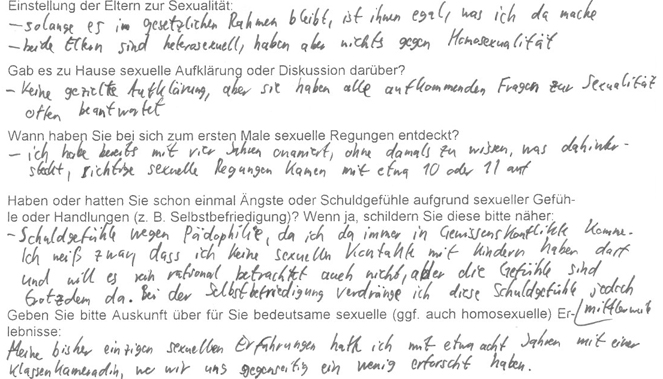 Einstellung der Eltern zur Sexualität:
– solange es im gesetzlichen Rahmen bleibt, ist ihnen egal, was ich da mache
– beide Eltern sind heterosexuell, haben aber nichts gegen Homosexualität
Gab es zu Hause sexuelle Aufklärung oder Diskussion darüber?
– Keine gezielte Aufklärung, aber sie haben alle aufkommenden Fragen zur Sexualität
offen beantwortet
Wann haben Sie bei sich zum ersten Male sexuelle Regungen entdeckt?
– ich habe bereits mit vier Jahren onaniert, ohne damals zu wissen, was dahinter-
steckt, richtige sexuelle Regungen kamen mit etwa 10 oder 11 auf
Haben oder hatten Sie schon einmal Ängste oder Schuldgefühle aufgrund sexueller Gefüh-
le oder Handlungen (z. B. Selbstbefriedigung)? Wenn ja, schildern Sie diese bitte näher:
– Schuldgefühle wegen Pädophilie, da ich da immer in Gewissenskonflikte komme.
Ich weiß zwar dass ich keine sexuellen Kontakte mit Kindern haben darf
und will es rein rational betrachtet auch nicht, aber die Gefühle sind
trotzdem da. Bei der Selbstbefriedigung verdränge ich diese Schuldgefühle jedoch
mittlerweile
Geben Sie bitte Auskunft über für Sie bedeutsame sexuelle (ggf. auch homosexuelle) Er-
lebnisse:
Meine bisher einzigen sexuellen Erfahrungen hatte ich mit etwa acht Jahren mit einer
Klassenkameradin, wo wir uns gegenseitig ein wenig erforscht haben.